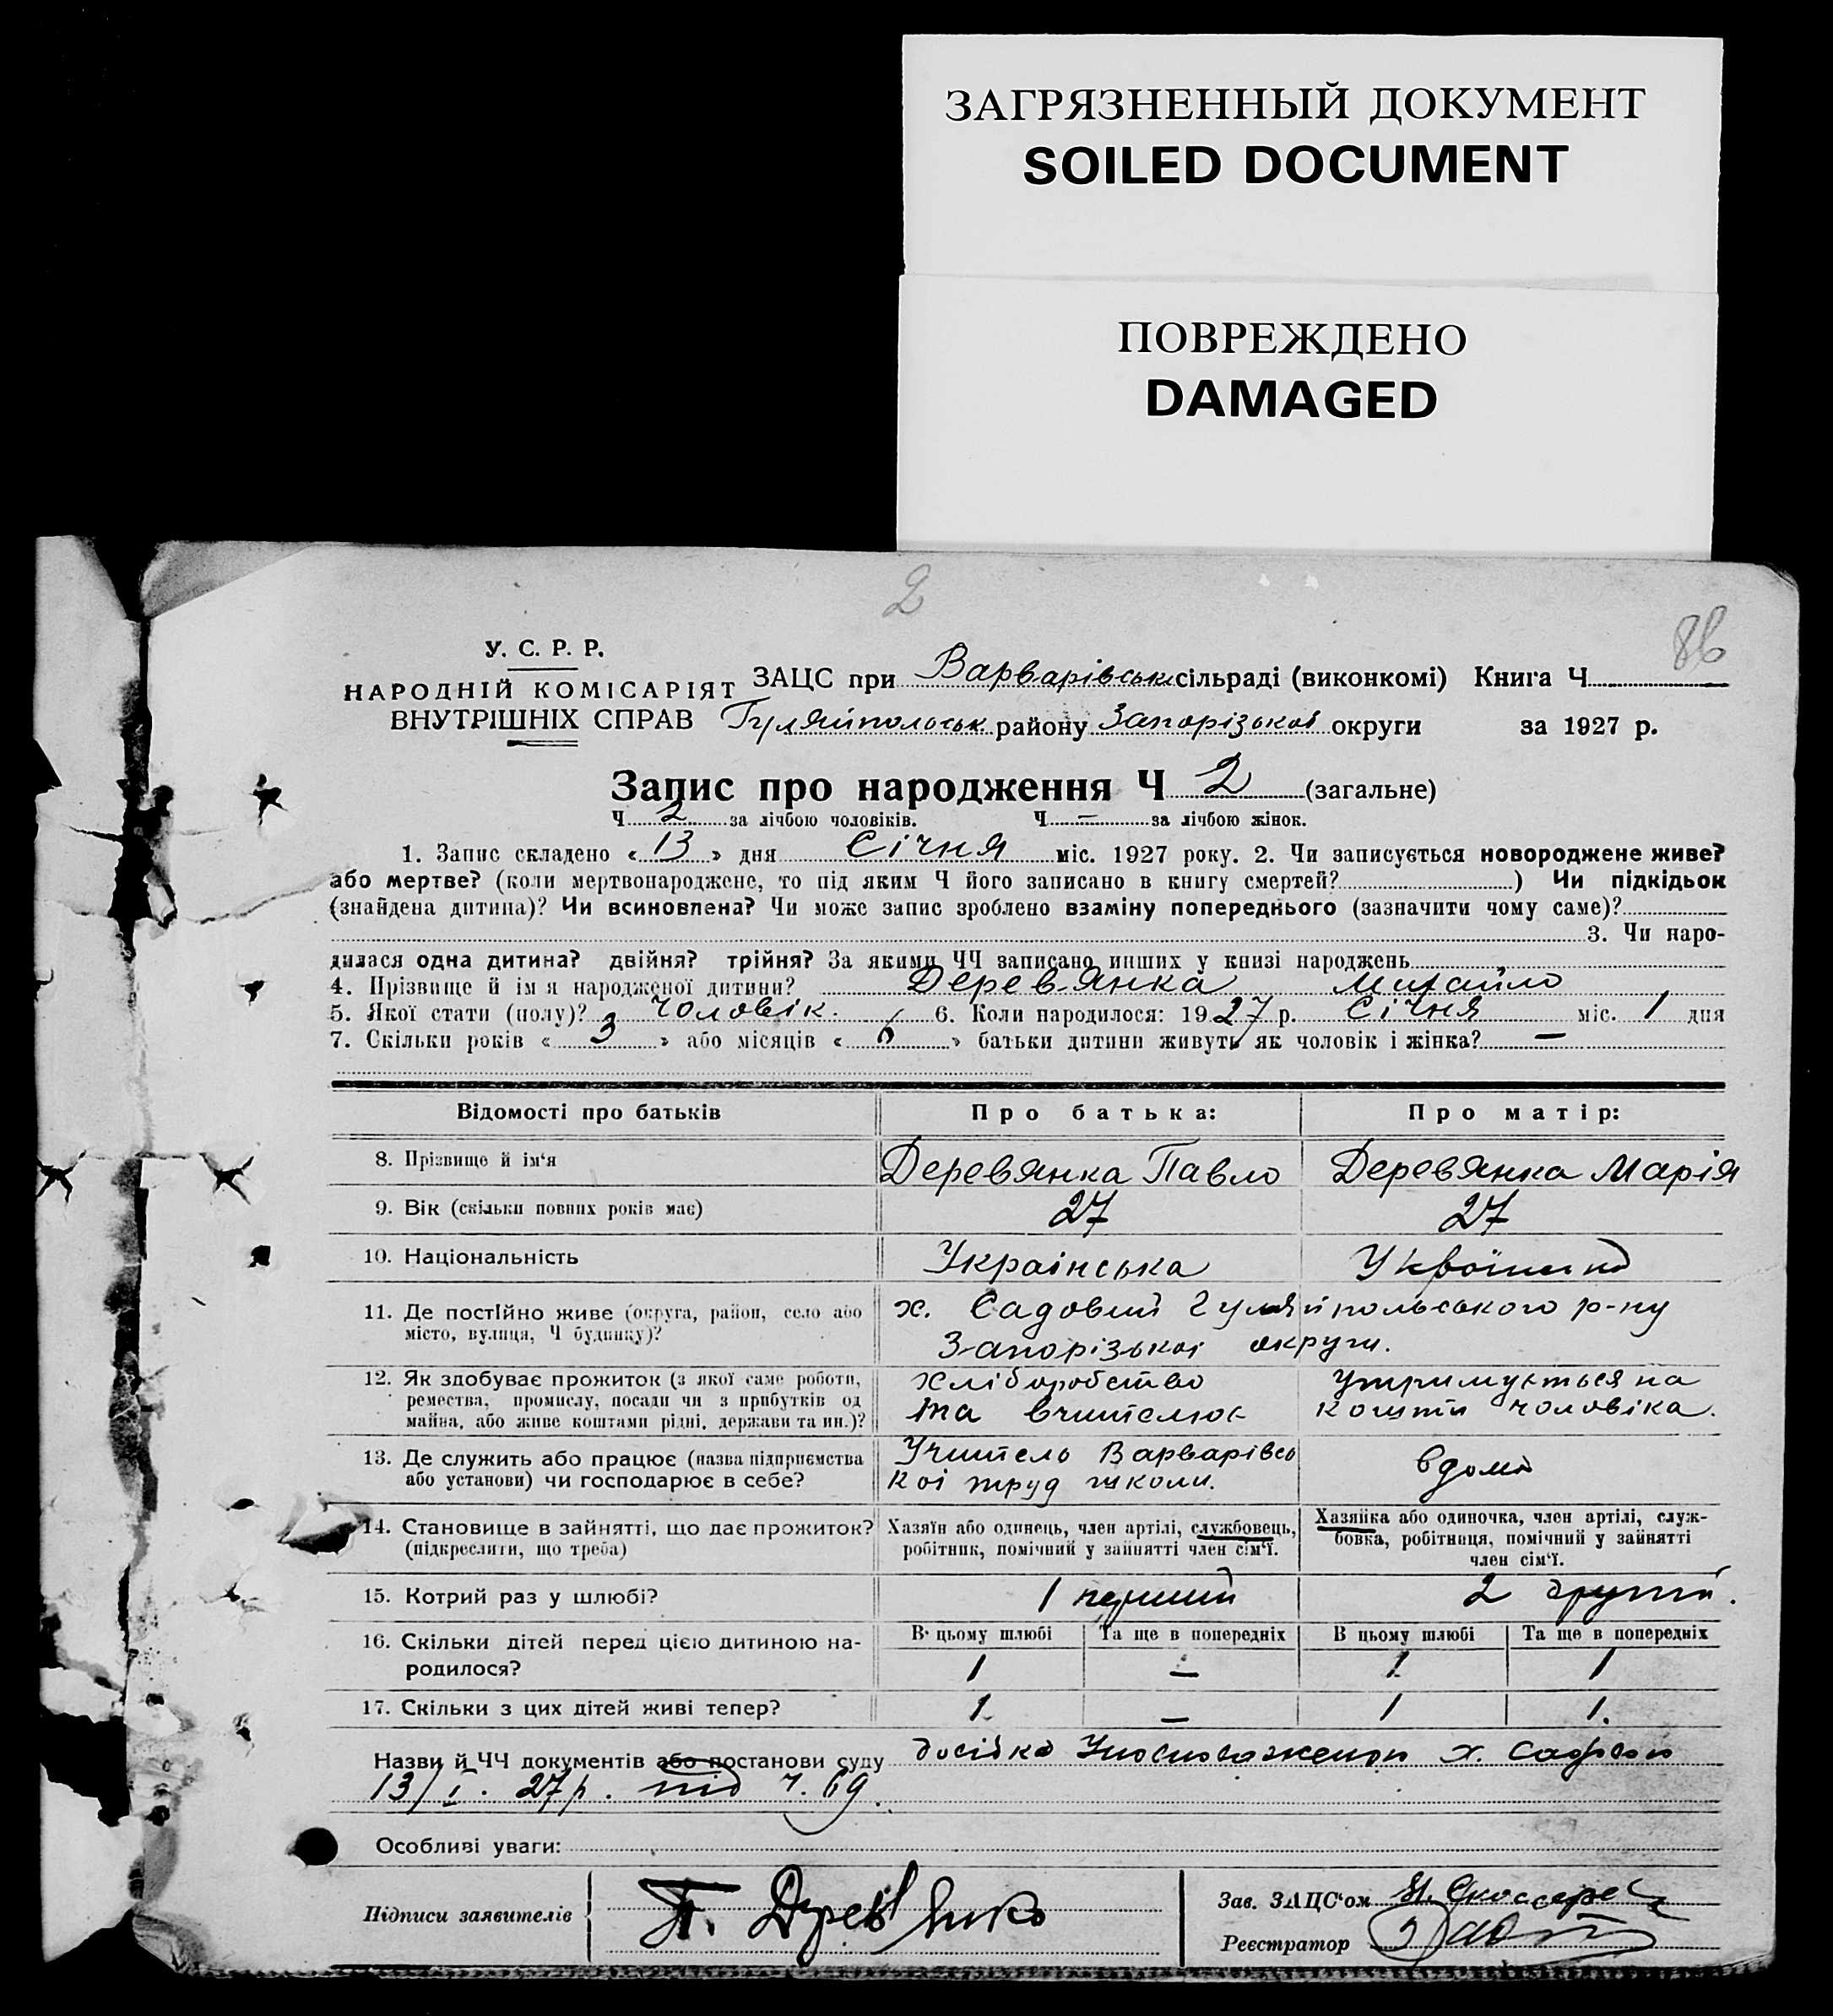 ЗАГРЯЗНЕННЫЙ ДОКУМЕНТ
SOILED DOCUMENT
ПОВРЕЖДЕНО
DAMAGED
2
86
У. С. Р. Р.
НАРОДНІЙ КОМІСАРІЯТ
ВНУТРІШНІХ СПРАВ
ЗАЦС при Варварівськ сільраді (виконкомі) Книга Ч
Гуляйпольськ. району Запорізької округи за 1927 р.
Запис про народження Ч 2 (загальне)
Ч 2 за лічбою чоловіків. Ч — за лічбою жінок.
1. Запис складено « 13 » дня Січня міс. 1927 року. 2. Чи записується новороджене живе?
або мертве? (коли мертвонароджене, то під яким Ч його записано в книгу смертей? ) Чи підкідьок
(знайдена дитина)? Чи всиновлена? Чи може запис зроблено взаміну попереднього (зазначити чому саме)?
3. Чи наро-
дилася одна дитина? двійня? трійня? За якими ЧЧ записано инших у книзі народжень
4. Прізвище й ім'я народженої дитини? Дерев-янка Михайло
5. Якої стати (полу)? Чоловік. 6. Коли народилося: 1927 р. Січня міс. 1 дня
7. Скільки років « 3 » або місяців « 6 » батьки дитини живуть як чоловік і жінка? —
Відомості про батьків Про батька: Про матір:
8. Прізвище й ім'я Деревянка Павло Деревянка Марія
9. Вік (скільки повних років має) 27 27
10. Національність Українська
11. Де постійно живе (округа, район, село або
місто, вулиця, Ч будинку)?
х. Садовий Гуляйпольського р-ну
Запорізької округи.
12. Як здобуває прожиток (з якої саме роботи,
ремества, промислу, посади чи з прибутків од
майна, або живе коштами рідні, держави та ин.)?
хліборобство
та вчителює
утримується на
кошти чоловіка.
13. Де служить або працює (назва підприємства
або установи) чи господарює в себе?
Учитель Варварівсь
кої труд школи.
вдома
14. Становище в зайнятті, що дає прожиток?
(підкреслити, що треба)
Хазяїн або одинець, член артілі, службовець,
робітник, помічний у зайнятті член сім'ї.
Хазяйка або одиночка, член артілі, служ-
бовка, робітниця, помічний у зайнятті
член сім'ї.
15. Котрий раз у шлюбі? 1 перший 2 другий.
16. Скільки дітей перед цією дитиною на-
родилося?
В цьому шлюбі Та ще в попередніх В цьому шлюбі Та ще в попередніх
1 — 1 1
17. Скільки з цих дітей живі тепер? 1 — 1 1.
Назви й ЧЧ документів або постанови суду
13/I. 27р. під ч. 69.
Особливі уваги:
Підписи заявителів П. Деревянко
Зав. ЗАЦС'ом
Реєстратор